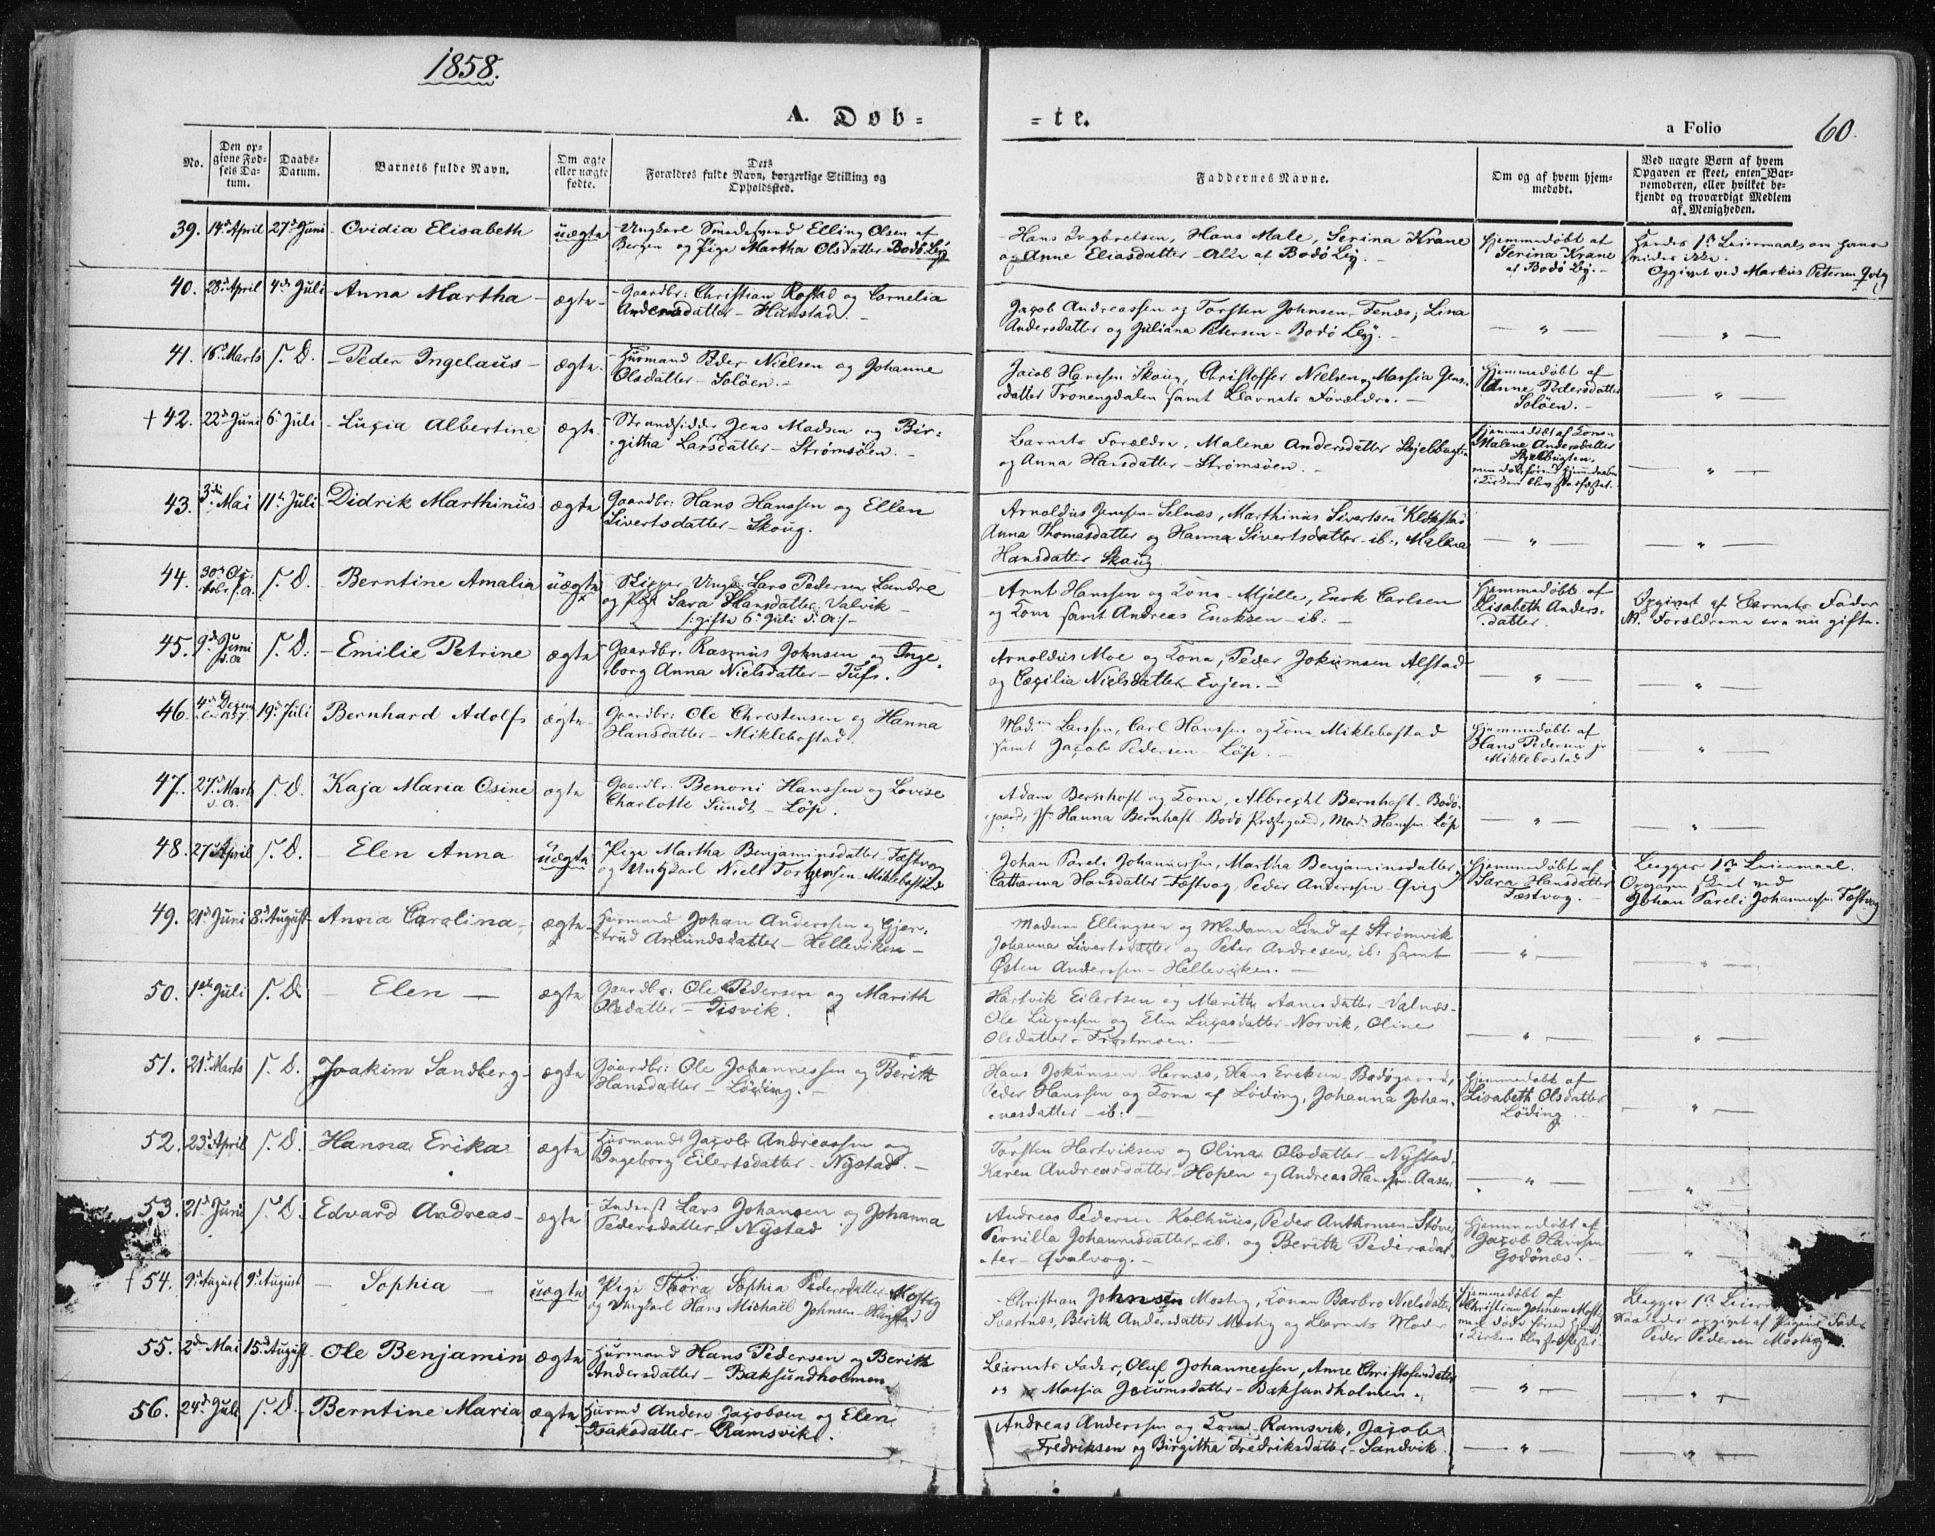 1858.
A. Døb-
-te.
a Folio
60.
No.
Den op-
givne Fød-
sels Da-
tum.
Daabs-
Datum.
Barnets fulde Navn.
Om ægte
eller uægte
fødte.
Dets
Forældres fulde Navn, borgerlige Stilling og
Opholdssted.
Faddernes Navne.
Om og af hvem hjem-
medøbt.
Ved uægte Børn af hvem
Opgaven er skeet, enten Bar-
nemoderen, eller hvilket be-
kjendt og troværdigt Medlem
af Menigheden.
39. 14d April 27d Juni Ovidia Elisabeth uægte
Ungkarl Smedesvend Elling Olsen af
Bergen og Pige Martha Olsdatter Bodø Bÿ
Hans Ingbretsen, Hans Male, Serina Krane
og Anne Eliasdatter - Alle af Bodø By. -
Hjemmedøbt af
Serina Krane
af Bodø By. -
Hendes 1ste Leiermaal, om hans
vides ikke.
Opgivet ved Markus Petersen
40. 28d April 4de Juli Anna Martha - ægte -
Gaardbr: Christian Rostad og Cornelia
Andersdatter - Hunstad. -
Jacob Andreassen og Torsten Johnsen - Fenæs, Lina
Andersdatter og Juliana Petersen - Bodø By. -
— " —
— " —
41. 16d Marts S. D. - Peder Ingelaus - ægte -
Huusmand Peder Nielsen og Johanne
Olsdatter - Soløen. -
Jacob Hansen Skoug, Christoffer Nielsen, Massia Jens-
datter Tronengdalen samt Barnets Forældre. -
Hjemmedøbt af
Anne Pedersdatter
Soløen. -
— " —
+ 42. 22d Juni 6d Juli - Lucia Albertine ægte
Strandsidder Jens Madsen og Bir-
githa Larsdatter - Strømsøen. -
Barnets Forældre, Malene Andersdatter Skjelbugten
og Anna Hansdatter - Strømsøen. -
Hjemmedøbt af Konen
Malene Andersdatter
Skjelbugten,
— " —
43. 3die Mai 11te Juli Didrik Marthinus ægte
Gaardbr: Hans Hanssen og Ellen
Sivertsdatter - Skoug.
Arnoldus Jensen - Selnæs, Marthinus Sivertsen Klokstad
Anna Thomasdatter og Hanna Sivertsdatter - ib:, Malena
Hansdatter Skoug
— " —
— " —
44. 30te Oc-
tobr f. A. S. D. Berntine Amalia uægte
Skipper Ungk: Lars Pedersen Landre
og Pige Sara Hansdatter, Valvik -
/: gifte 6d Juli d. A: /-
Arnt Hanssen og Kone - Mjelle, Enok Carlsen
og Kone samt Andreas Enoksen - ib: -
Hjemmedøbt af
Elisabeth Anders-
datter.
Opgivet af Barnets Fader
Forældrene ere nu gifte.
45. 9de Juni
d. A. S. D. - Emilie Petrine ægte
Gaardbr: Rasmus Johnsen og Inge
borg Anna Nielsdatter - Tufs.
Arnoldus Moe og Kone, Peder Jokumsen Alstad
og Cæcilia Nielsdatter Evjen. -
— " —
— " —
46. 4de Decem
ber 1857. 19d Juli Bernhard Adolf ægte -
Gaardbr: Ole Christensen og Hanna
Hansdatter - Miklebostad.
Madm Larssen, Carl Hanssen og Kone Miklebostad
samt Jacob Pedersen - Løp. -
Hjemmedøbt af
Hans Pedersen jr
Miklebostad
— " —
47. 27d Marts
d. A. S. D. - Kaja Maria Osine ægte
Gaardbr. Benoni Hanssen og Lovise
Charlotte Sundt - Løp.
Adam Bernhoft og Kone, Albrecht Bernhoft - Bodø-
gaard, Jf: Hanna Bernhoft - Bodø Præstegaard, Mad: Hanssen - Løp
— " —
— " —
48. 27d April S. D. - Elen Anna uægte
Pige Martha Benjaminsdatter Fæstvog
og Ungkarl Niels Torgersen - Miklebostad
Johan Pareli Johannessen, Martha Benjaminsdatter,
Catharina Hansdatter Fæstvog, Peder Anderssen - Qvig
Hjemmedøbt af
Sara Hansdatter
Fæstvog. -
Begges 1ste Leiermaal.
Opgaven skeet ved
Johan Pareli Johannessen Fæstvog
49. 21d Juni 8d August Anna Carolina, ægte -
Huusmand Johan Anderssen og Gjer-
trud Amundsdatter - Helleviken -
Madame Ellingsen og Madame Lind af Strømvik
Johanna Sivertsdatter og Peter Andresen, ib: samt
Østen Anderssen - Helleviken. -
— " —
— " —
50. 1ste Juli S. D. - Elen - ægte
Gaardbr: Ole Pedersen og Marith
Olsdatter - Tisvik.
Hartvik Eilertsen og Marith Aamsdatter - Valnæs -
Ole Lucassen og Elen Lucasdatter - Norvik, Oline
Olsdatter - Frostmoen. -
— " —
— " —
51. 21d Marts S. D. Joakim Sandberg - ægte
Gaardbr: Ole Johannessen og Berith
Hansdatter - Løding. -
Hans Jokumsen - Hernæs, Hans Eriksen - Bodøgaard,
Peder Hanssen og Kone af Løding, Johanna Johan-
nesdatter - ib: -
Hjemmedøbt af
Lisabeth Olsdatter
Løding. -
— " —
52. 23d April S. D. Hanna Erika ægte
Huusmand Jacob Andreassen og
Ingeborg Eilertsdatter - Nystad. -
Torsten Hartviksen og Olina Olsdatter - Nystad,
Karen Andreasdatter - Hopen og Andreas Hansen - Aasen
— " —
— " —
53. 21d Juni S. D. Edvard Andreas - ægte
Inderst Lars Johansen og Johanna
Pedersdatter - Nystad
Andreas Pedersen - Kolhuus, Peder Anthonsen - Støver
Pernilla Johannisdatter - ib. og Berith Pedersdat-
ter - Qvalvog. -
Hjemmedøbt af
Jacob Hanssen
Godønæs. -
— " —
+ 54. 9d August 9d August - Sophia - uægte
Pige Thora Sophia Pedersdatter - Mostig
og Ungkarl Hans Michael Johnsen - Hagstad
Christian Johnsen Mostig, Konen Barbro Nielsdatter
Svartnæs, Berith Andersdatter Mostig og Barnets Moder
Hjemmedøbt af
Christian Johnsen Mostig
Begges 1ste Leier
opgivet af Pigens Fader
Peder Pedersen Mostig
55. 2den Mai 15d August - Ole Benjamin ægte
Huusmand Hans Pedersen og Berith
Andersdatter - Baksundholmen
Barnets Fader, Oluf Johannessen, Anne Christofersdatter
og Massia Jocumsdatter - Baksundholmen.
— " —
— " —
56. 24d Juli S. D. - Berntine Maria ægte
Huusmd Anders Jacobsen og Elen
Isaksdatter - Ramsvik.
Andreas Anderssen og Kone - Ramsvik, Jacob
Fredriksen og Birgitha Fredriksdatter - Sandvik
— " —
— " —